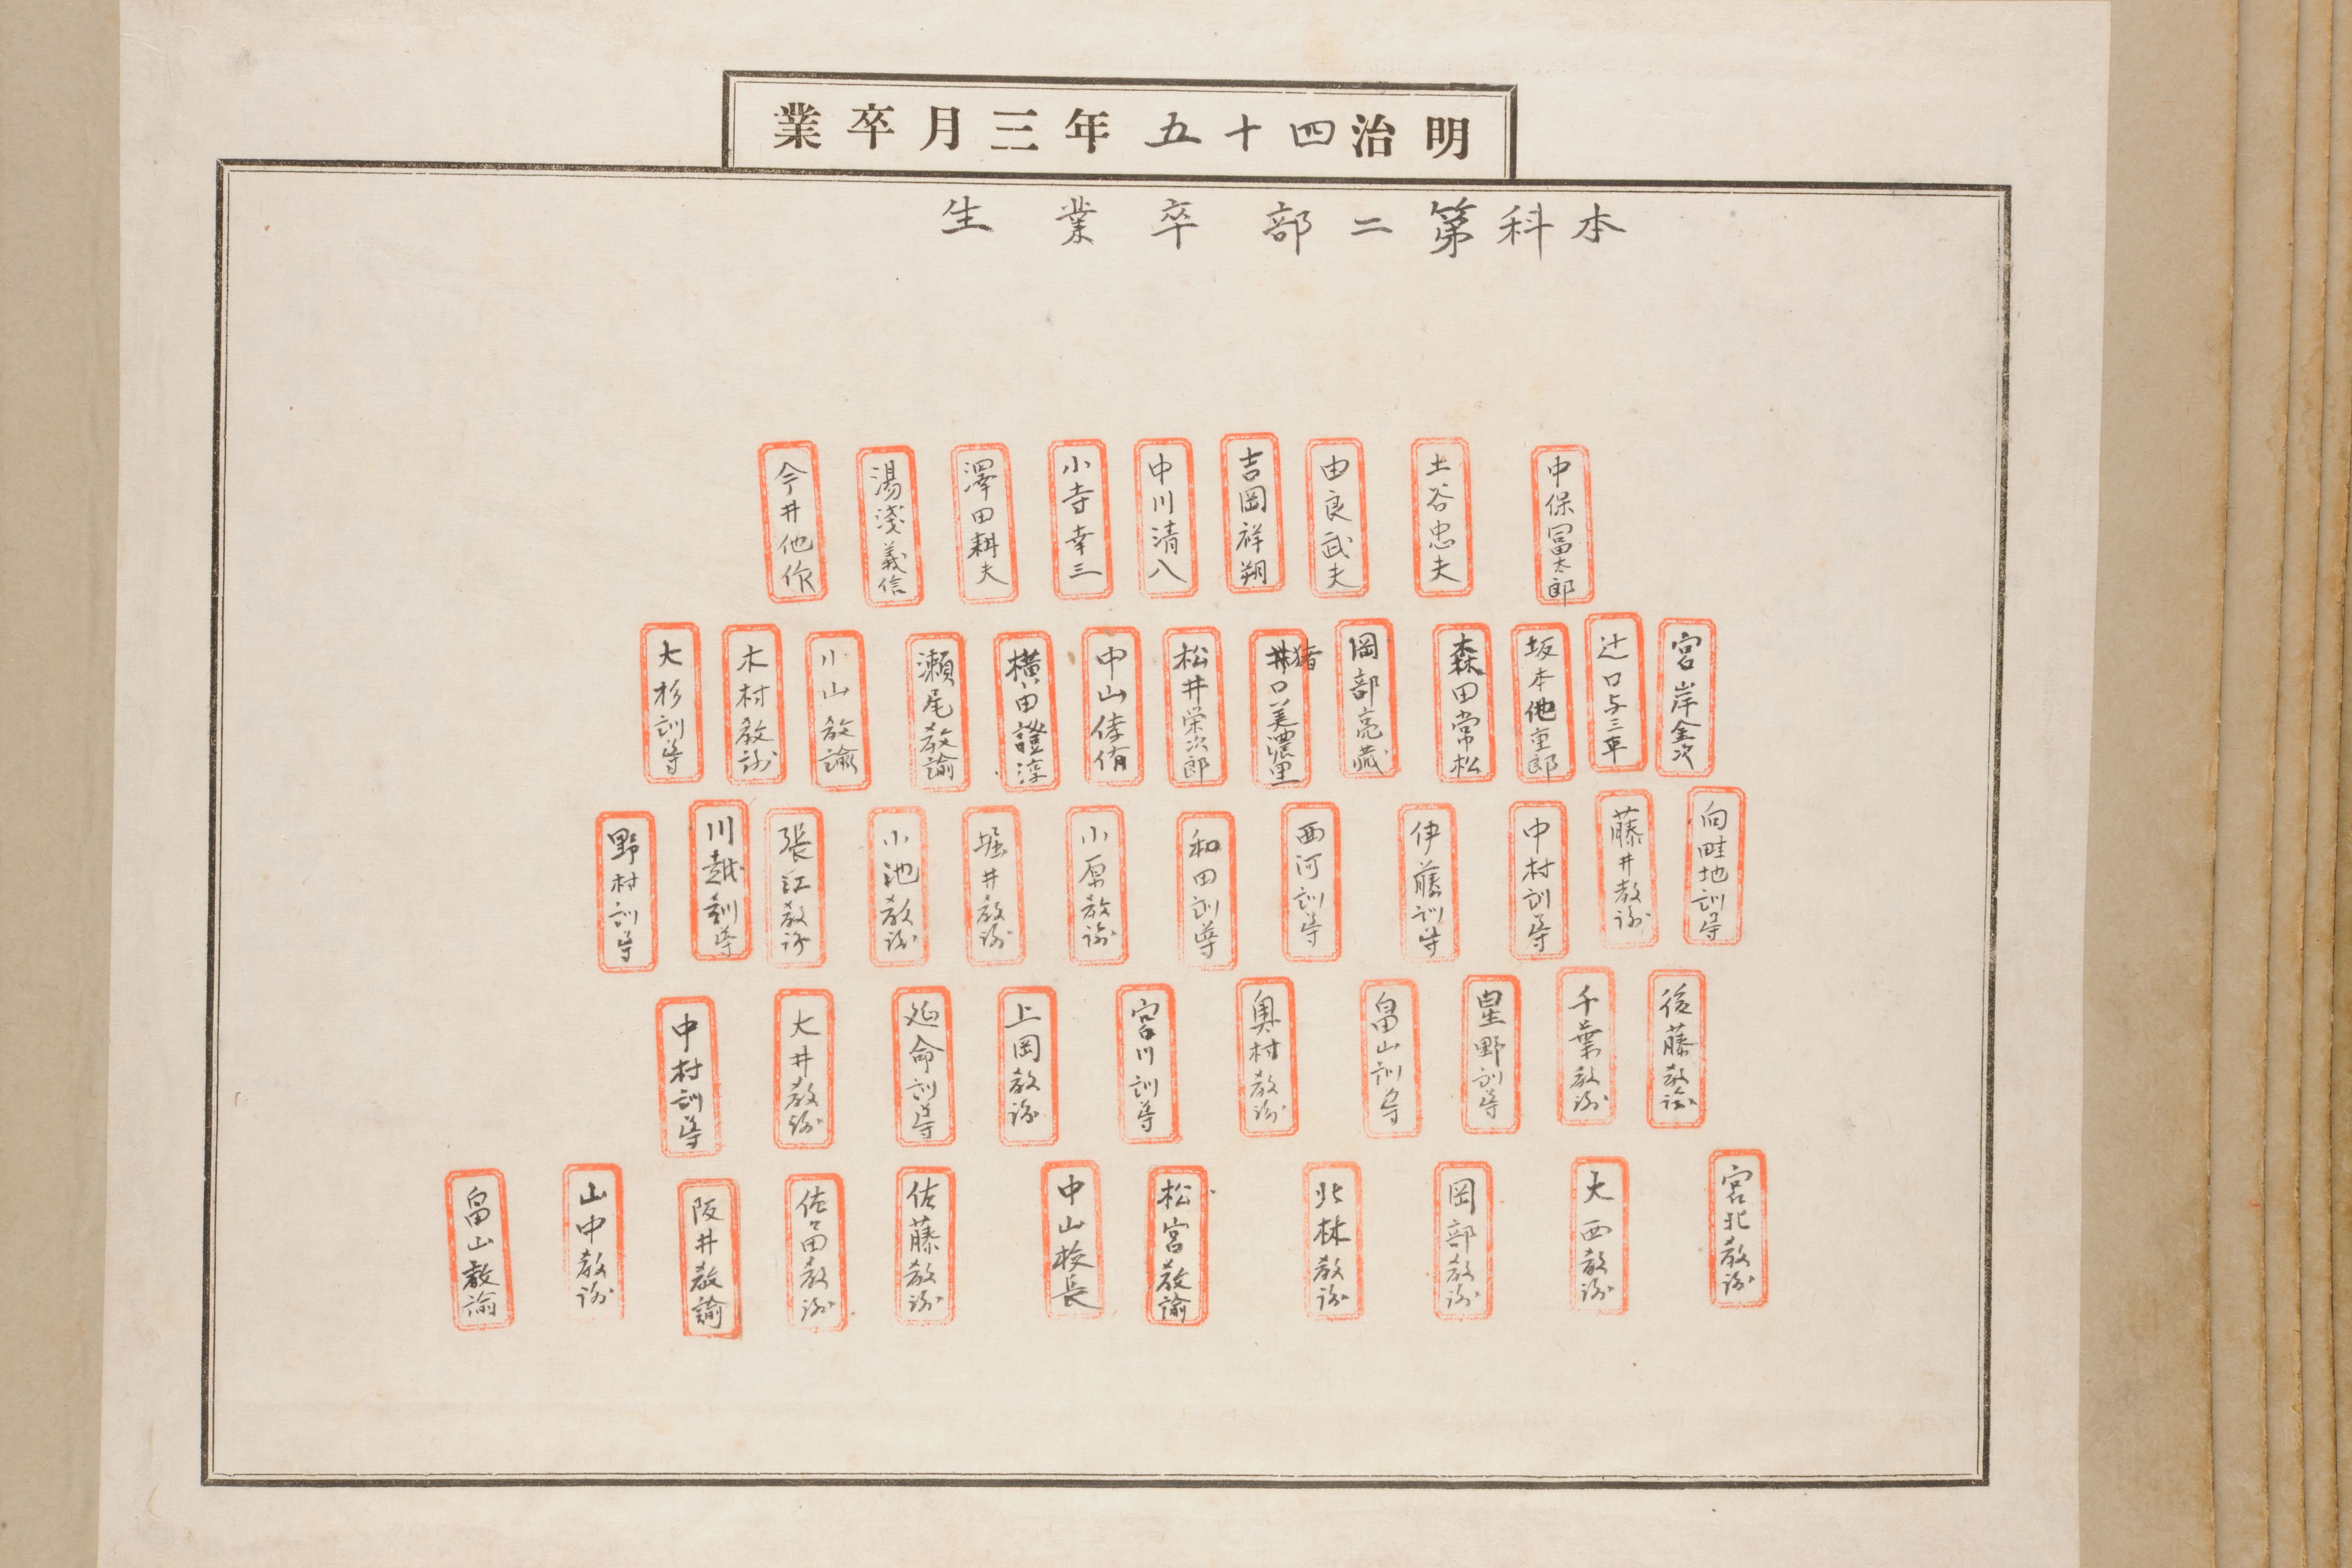 明治四十五年三月卒業
本科第二部卒業生
中保冨太郎
土谷忠夫
由良武夫
吉岡祥朔
中川清八
小寺幸三
澤田耕夫
湯淺義信
今井他作
宮岸金次
辻口与三車
坂本他重郎
森田常松
岡部亮藏
猪口美濃里
松井栄次郎
中山倖侑
横田證淳
瀬尾教諭
小山教諭
木村教諭
大杉訓導
向畦地訓導
藤井教諭
中村訓導
伊藤訓導
西河訓導
和田訓導
小原教諭
堀井教諭
小池教諭
張江教諭
川越訓導
野村訓導
後藤教諭
千葉教諭
星野訓導
畠山訓導
奥村教諭
宮川訓導
上岡教諭
延命訓導
大井教諭
中村訓導
宮北教諭
大西教諭
岡部教諭
北林教諭
松宮教諭
中山校長
佐藤教諭
佐々田教諭
阪井教諭
山中教諭
畠山教諭